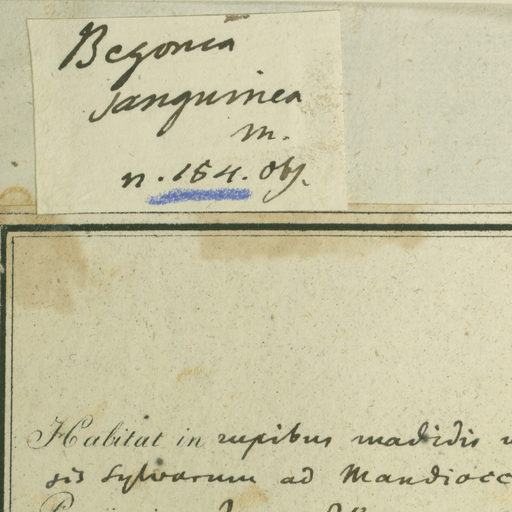 Begonia
sanguinea
m.
n. 154. obs.
Habitat in rupibus madidis
sis sylvarum ad Mandiocc